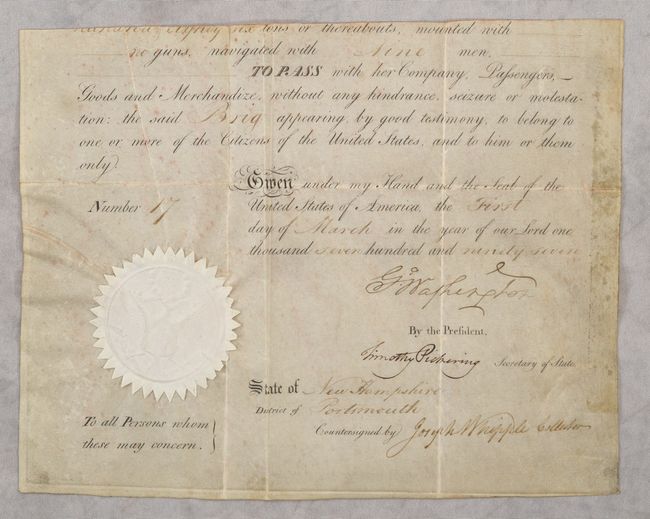 hundred eighty six tons or thereabouts, mounted with
no guns, navigated with Nine men,
TO PASS with her Company, Passengers,
Goods and Merchandize, without any hindrance, seizure or molesta-
tion: the said Brig appearing, by good testimony, to belong to
one or more of the Citizens of the United States, and to him or them
only.
Given under my Hand and the Seal of the
Number 17 United States of America, the First
day of March in the year of our Lord one
thousand seven hundred and ninety seven
Go Washington
By the President,
Timothy Pickering Secretary of State.
State of New Hampshire
District of Portsmouth
To all Persons whom
Countersigned by Joseph Whipple Collector
these may concern.